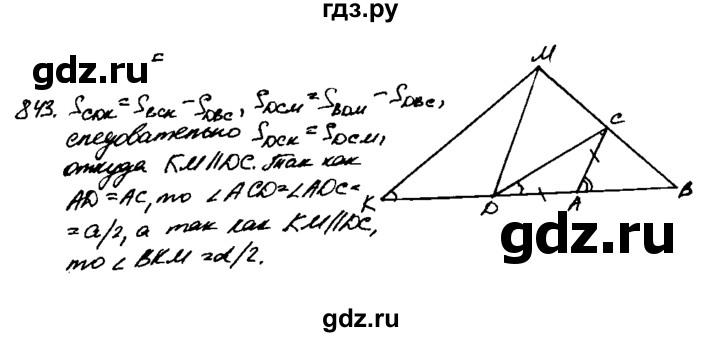 гдз.ру
gdz.ru
843. S_CDK = S_BCK − S_DBC, S_DCM = S_BDM − S_DBC,
следовательно S_DCK = S_DCM,
откуда KM || DC. Так как
AD = AC, то ∠ACD = ∠ADC =
= α/2, а так как KM || DC,
то ∠BKM = α/2.
M
C
K
D
A
B
gdz.ru
gdz.ru